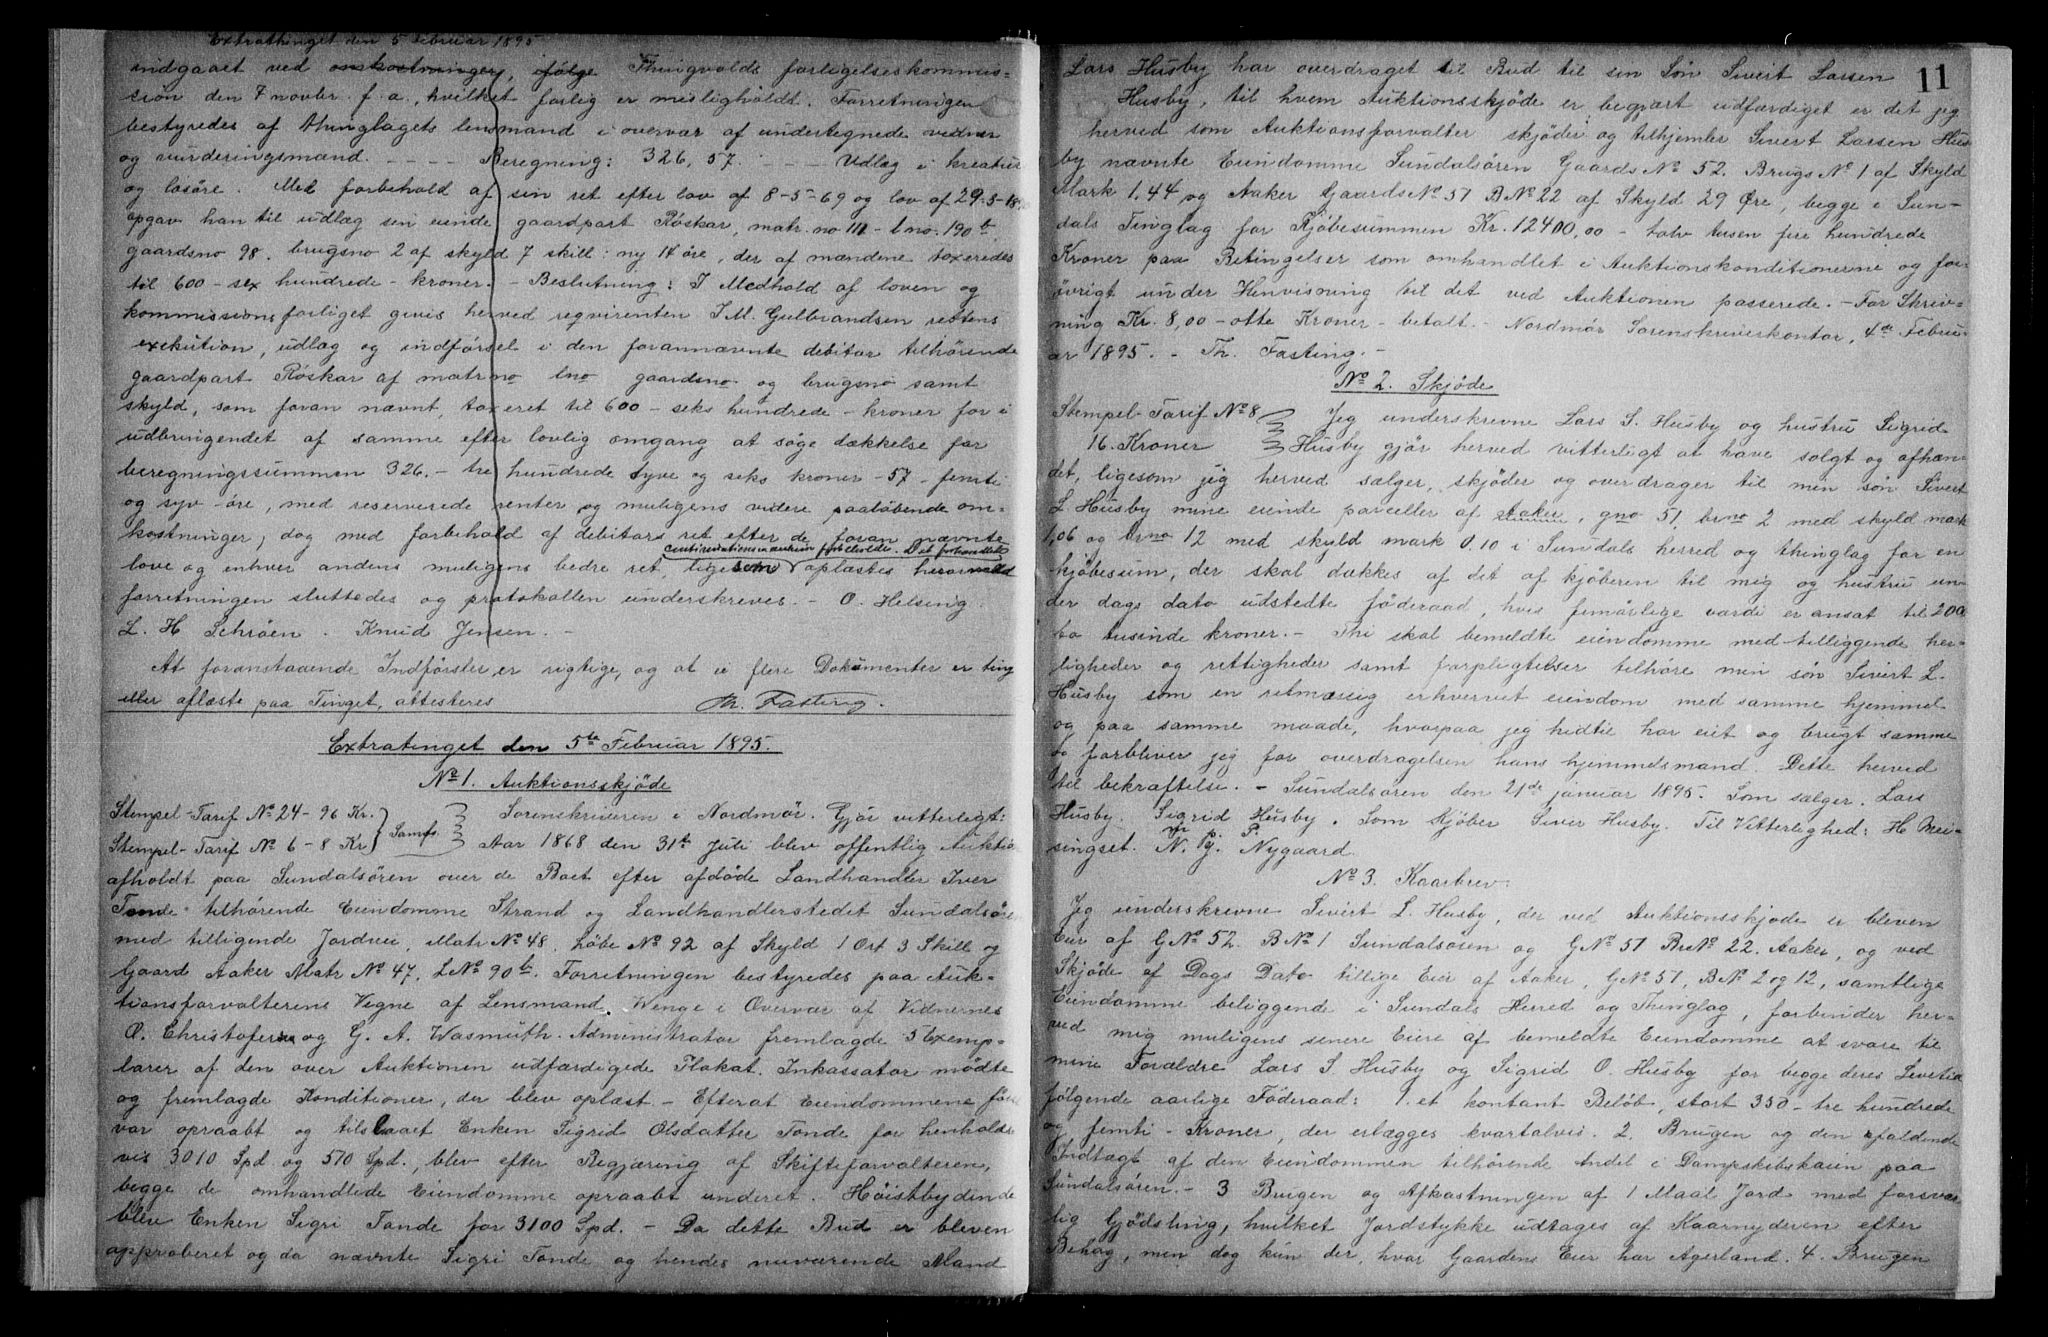 Extrathinget den 5 Februar 1895
indgaaet ved omkostninger, ifølge Thingvolds forligelseskommis-
sion den 7 novbr. f. a., hvilket forlig er misligholdt. Forretningen
bestyredes af thinglagets lensmand i overvær af undertegnede vidner
og vurderingsmænd. - - - - Beregning: 326,57. - - - Udlæg i kreatur
og løsøre. Med forbehold af sin ret efter lov af 8-5-69 og lov af 29-3-18
opgav han til udlæg sin eiende gaardpart Röskar, matr. no 111 - lno. 190b
gaardsno 98. brugsno 2 af skyld 7 skill: ny 14 öre, der af mændene taxeredes
til 600 - sex hundrede - kroner. - Beslutning: I Medhold af loven og
kommissionsforliget givis herved reqvirenten I. M. Gulbrandsen rettens
exekution, udlæg og indförsel i den forannævnte debitor tilhørende
gaardpart Röskar af matrno lno gaardsno og brugsno samt
skyld, som foran nævnt, taxeret til 600 - seks hundrede - kroner for i
udbringendet af samme efter lovlig omgang at söge dækkelse for
beregningssummen 326. - tre hundrede tyve og seks kroner - 57 - femti
og syv öre, med reserverede renter og muligens videre paalöbende om-
kostninger, dog med forbehold af debitors ret efter de foran nævnte
love og enhver andens muligens bedre ret, ligesom oplæstes
forretningen sluttedes og protokollen underskreves. - O. Helsing.
L. H Schröen. Knud Jensen. -
At foranstaaende Indförsler er rigtige, og at ei flere Dokumenter er ting
eller aflæste paa Tinget, attesteres Th. Fasting.
Extratinget den 5te Februar 1895.
No 1. Auktionsskjöde
Stempel-Tarif No 24 - 96 Kr. Sorenskriveren i Nordmör. Gjör vitterligt:
Stempel-Tarif No 6 - 8 Kr Samfr. Aar 1868 den 31te Juli blev offentlig Auktio
afholdt paa Sundalsören over de Boet efter afdöde Landhandler Iver
Tonde tilhörende Eiendomme Strand og Landhandlerstedet Sundalsören
med tilligende Jordvei, Matr No 48, Löbe No 92 af Skyld 1 Ort 3 Skill og
Gaard Aaker Matr No 47. L No 90b. Forretningen bestyredes paa Auk-
tionsforvalterens Vegne af Lensmand Wenge i Overvær af Vidnernes
O. Christofersen og G. A. Wasmuth. Administrator fremlagde 3 Exemp-
larer af den over Auktionen udfærdigede Plakat. Inkassator mödte
og fremlagde Konditioner, der blev oplæst. - Efterat Eiendommene förs
var opraabt og tilslaaet Enken Sigrid Olsdatter Tonde for henholds
vis 3010 Spd og 510 Spd., blev efter Begjæring af Skifteforvalteren,
begge de omhandlede Eiendomme opraabt underet. Höistbydende
blev Enken Sigri Tonde for 3100 Spd. - Da dette Bud er bleven
approberet og da nævnte Sigri Tonde og hendes nuværende Mand
11
Lars Husby har overdraget til Bud til sin Sön Sivert Larsen
Husby, til hvem Auktionsskjöde er begjært udfærdiget er det jeg
herved som Auktionsforvalter skjöder og tilhjemler Sivert Larsen Hus
by nævnte Eiendomme Sundalsören Gaards No 52. Brugs No 1 af Skyld
Mark 1.44 og Aaker Gaards No 51 B No 22 af Skyld 29 Øre, begge i Sun-
dals Tinglag for Kjöbesummen Kr. 12400,00 - tolv tusen fire hundrede
Kroner paa Betingelser som omhandlet i Auktionskonditionerne og for-
övrigt under Henvisning til det ved Auktionen passerede. - For Skriv-
ning Kr. 8,00 - otte Kroner - betalt. - Nordmör Sorenskriverkontor, 4de Febru
ar 1895. - Th. Fasting. -
No 2. Skjöde
Stempel-Tarif No 8 Jeg underskrevne Lars S. Husby og hustru Sigrid
16. Kroner Husby gjör herved vitterligt at have solgt og afhæn-
det, ligesom jeg herved sælger, skjöder og overdrager til min sön Sivert
L Husby mine eiende parceller af Aaker, gno 51, brno 2 med skyld mark
1,06 og brno 12 med skyld mark 0.10 i Sundals herred og thinglag for en
kjöbesum, der skal dækkes af det af kjöberen til mig og hustru un-
der dags dato udstedte föderaad, hvis femårlige værdi er ansat til 200
to tusinde kroner. - Thi skal bemeldte eiendomme med tilliggende her-
ligheder og rettigheder samt forpligtelser tilhöre min sön Sivert L.
Husby som en retmæssig erhvervet eiendom med samme hjemmel
og paa samme maade, hvorpaa jeg hidtil har eiet og brugt samme
og forbliver jeg for overdragelsen hans hjemmelsmand. Dette herved
til bekræftelse. - Sundalsören den 21de januar 1895. Som sælger. Lars
Husby. Sigrid Husby. Som Kjöber Siver Husby. Til Vitterlighed: H Mei-
singset. N. J. Nygaard.
No 3. Kaarbrev.
Jeg underskrevne Sivert L. Husby, der ved Auktionsskjöde er bleven
Eier af G No 52. B No 1 Sundalsören og G No 51 Br No 22. Aaker, og ved
Skjöde af Dags Dato tillige Eier af Aaker, G No 51, B No 2 og 12, samtlige
Eiendomme beliggende i Sundals Herred og Thinglag, forbinder her-
ved mig muligens senere Eiere af bemeldte Eiendomme at svare til
mine Forældre Lars S. Husby og Sigrid O. Husby for begge deres Livetid
fölgende aarlige Föderaad: 1. et kontant Belöb, stort 350 - tre hundrede
og femti - Kroner, der erlægges kvartalvis. 2. Brugen og den faldende
Indtægt af den Eiendommen tilhörende Andel i Dampskibskaien paa
Sundalsören. - 3 Brugen og Afkastningen af 1 Maal Jord med forsvar
lig Gjödsling, hvilket Jordstykke udtages af Kaarnyderen efter
Behag, men dog kun der, hvor Gaardens Eier har Agerland. 4. Brugen